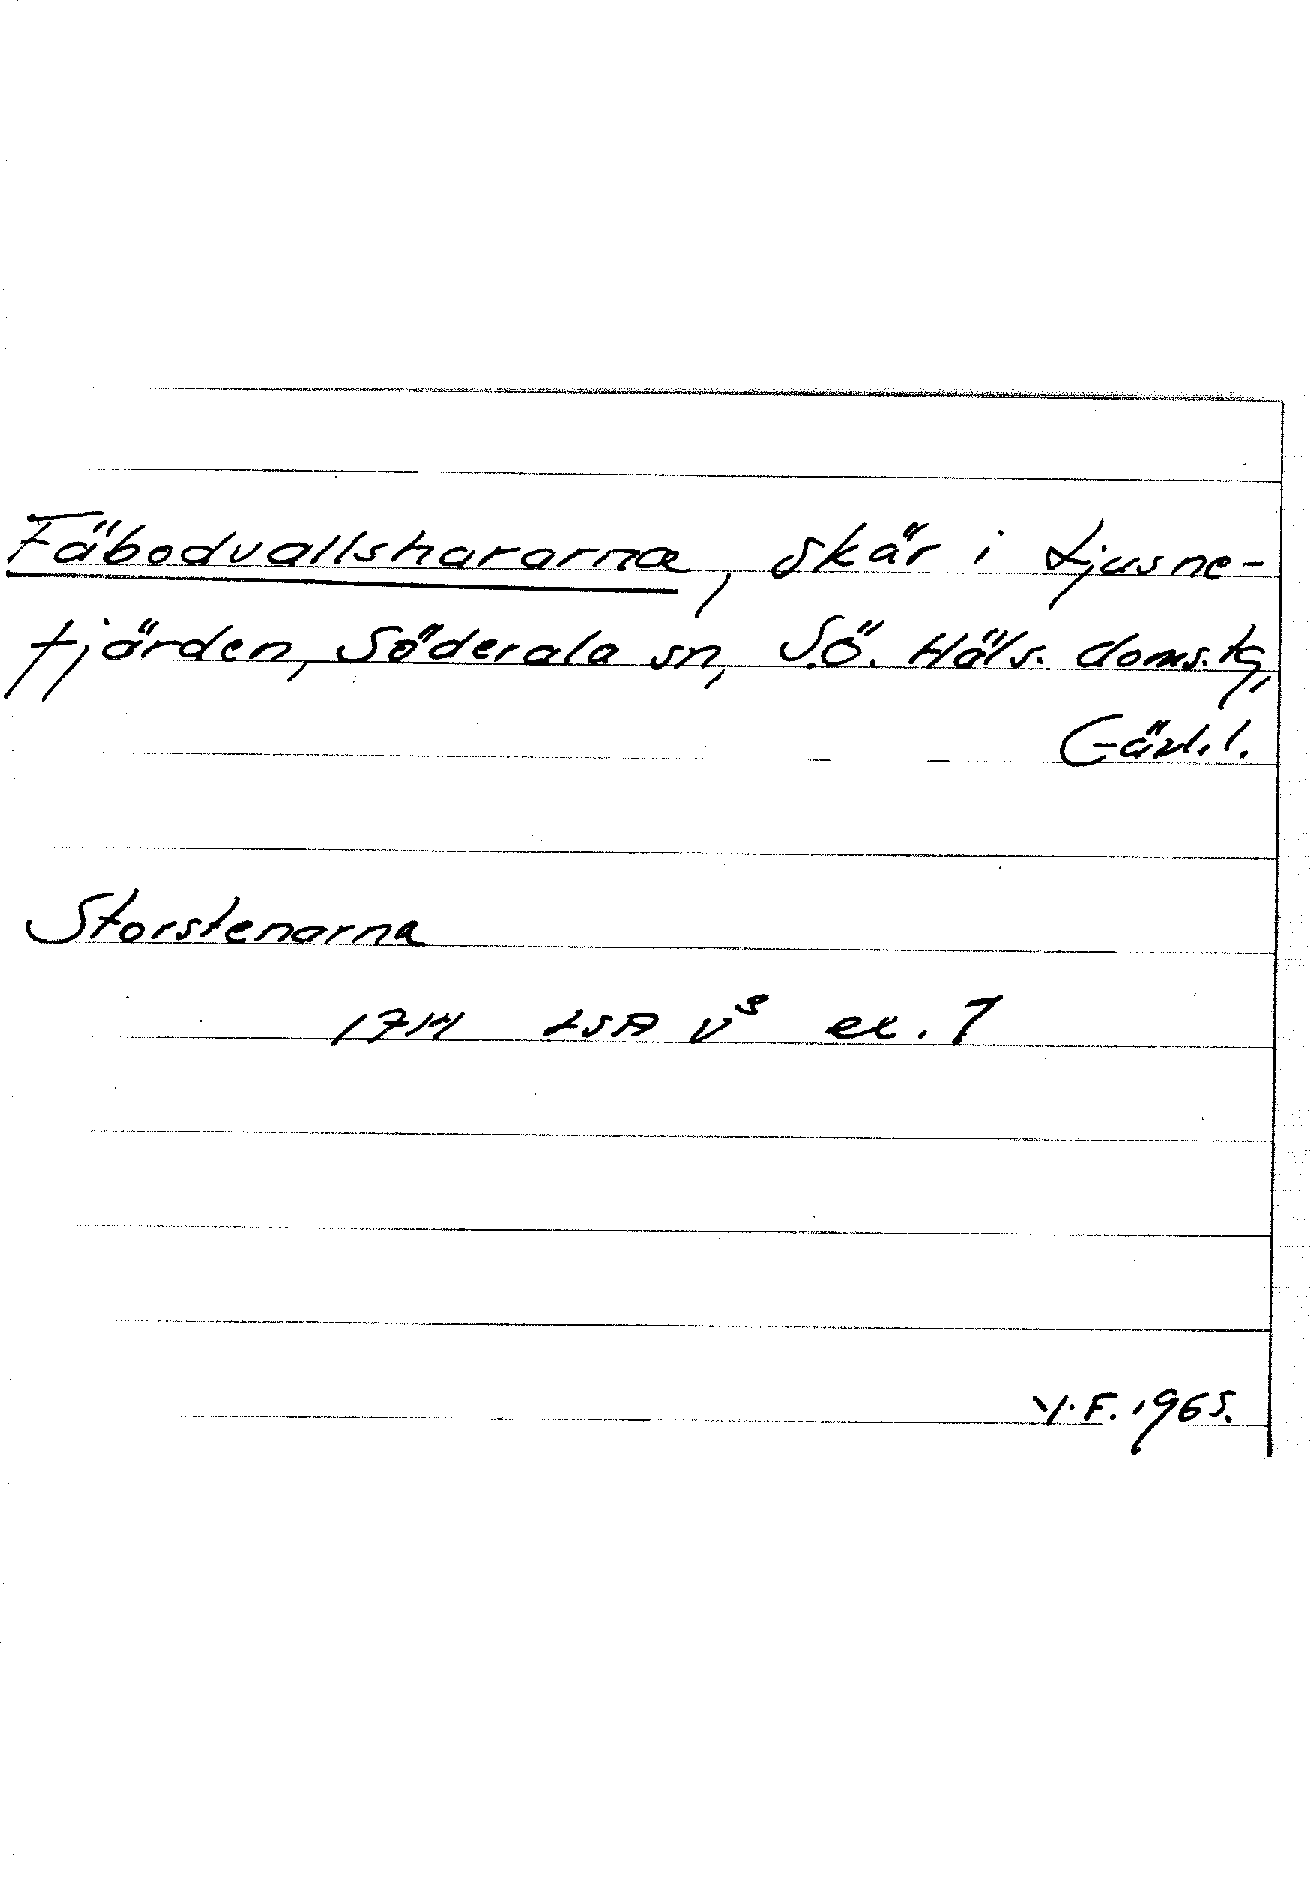 Fäbodvallshararna, skär i Ljusne-
fjärden, Söderala sn, S.Ö. Häls. doms.,
Gävl.l.
Storstenarna
1714 LSA V³ ex. 1
Y.F. 1965.